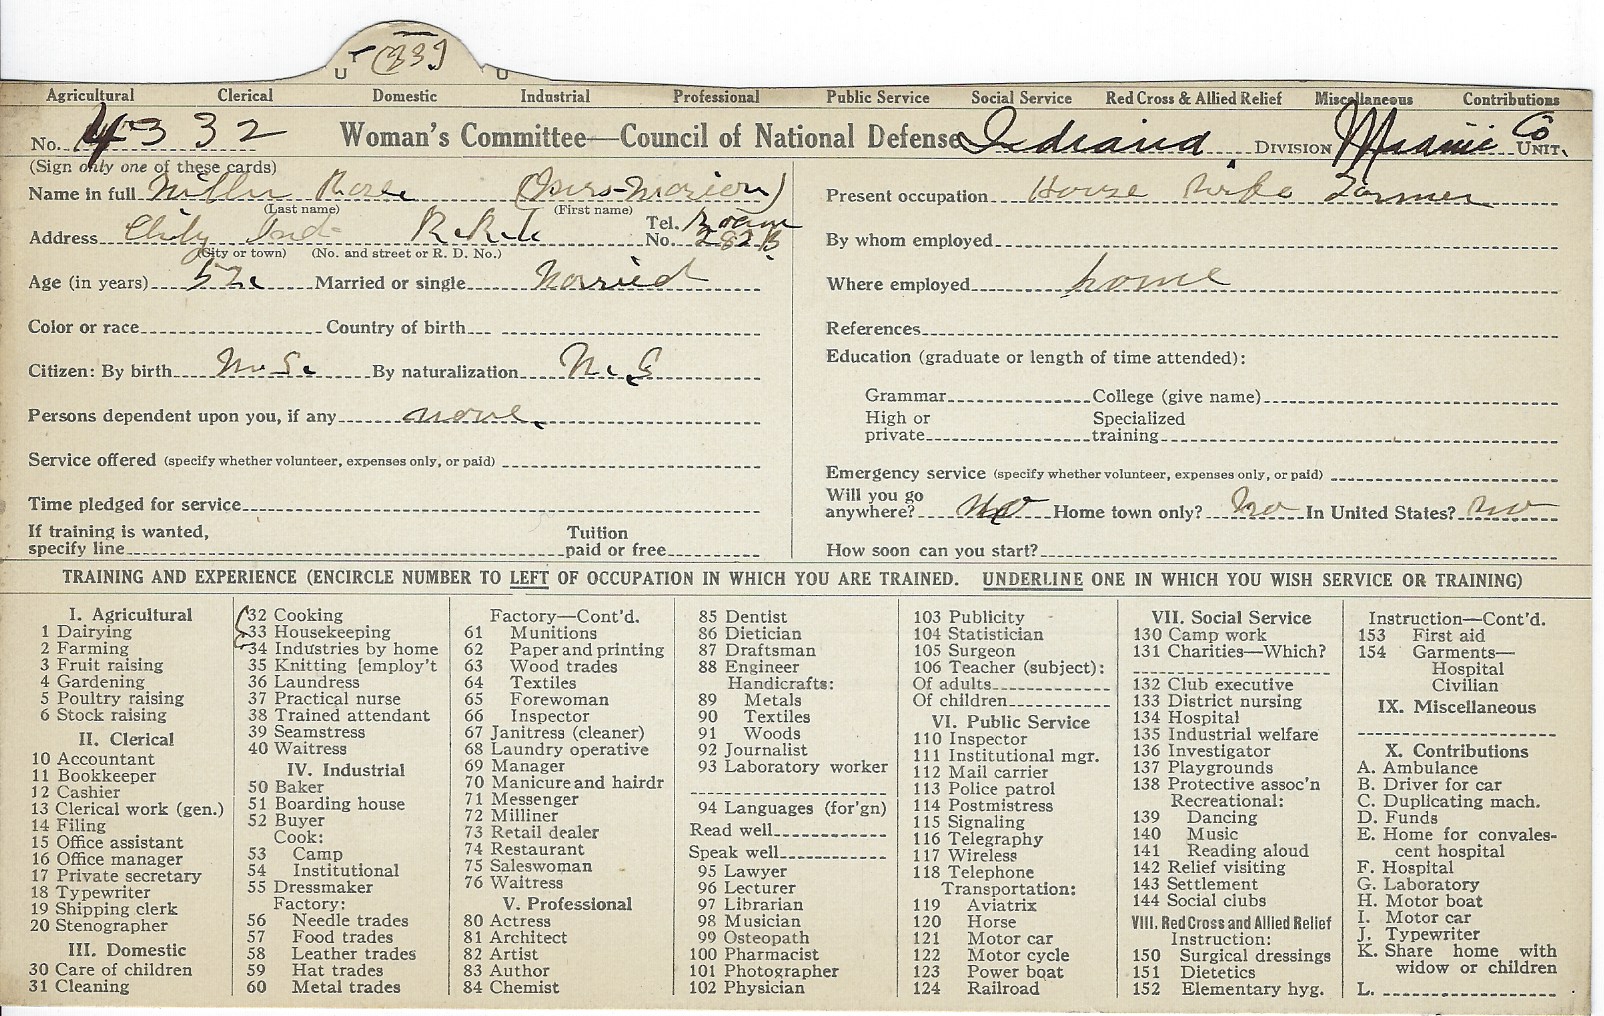 (33)
Agricultural Clerical Domestic Industrial Professional Public Service Social Service Red Cross & Allied Relief Miscellaneous Contributions
No. 4332 Woman's Committee—Council of National Defense Indiana DIVISION Miami Co UNIT.
(Sign only one of these cards)
Name in full Miller Rose (Mrs-Marion)
(Last name) (First name)
Address Chily Ind- Tel. No. 282B
(City or town) (No. and street or R. D. No.)
Age (in years) 52 Married or single Married
Color or race Country of birth
Citizen: By birth By naturalization
Persons dependent upon you, if any none
Service offered (specify whether volunteer, expenses only, or paid)
Time pledged for service
If training is wanted, specify line Tuition paid or free
Present occupation House wife Farmer
By whom employed
Where employed home
References
Education (graduate or length of time attended):
Grammar College (give name)
High or private Specialized training
Emergency service (specify whether volunteer, expenses only, or paid)
Will you go anywhere? no Home town only? no In United States? no
How soon can you start?
TRAINING AND EXPERIENCE (ENCIRCLE NUMBER TO LEFT OF OCCUPATION IN WHICH YOU ARE TRAINED. UNDERLINE ONE IN WHICH YOU WISH SERVICE OR TRAINING)
I. Agricultural
1 Dairying
2 Farming
3 Fruit raising
4 Gardening
5 Poultry raising
6 Stock raising
II. Clerical
10 Accountant
11 Bookkeeper
12 Cashier
13 Clerical work (gen.)
14 Filing
15 Office assistant
16 Office manager
17 Private secretary
18 Typewriter
19 Shipping clerk
20 Stenographer
III. Domestic
30 Care of children
31 Cleaning
32 Cooking
33 Housekeeping
34 Industries by home
35 Knitting [employ't
36 Laundress
37 Practical nurse
38 Trained attendant
39 Seamstress
40 Waitress
IV. Industrial
50 Baker
51 Boarding house
52 Buyer
Cook:
53 Camp
54 Institutional
55 Dressmaker
Factory:
56 Needle trades
57 Food trades
58 Leather trades
59 Hat trades
60 Metal trades
Factory—Cont'd.
61 Munitions
62 Paper and printing
63 Wood trades
64 Textiles
65 Forewoman
66 Inspector
67 Janitress (cleaner)
68 Laundry operative
69 Manager
70 Manicure and hairdr
71 Messenger
72 Milliner
73 Retail dealer
74 Restaurant
75 Saleswoman
76 Waitress
V. Professional
80 Actress
81 Architect
82 Artist
83 Author
84 Chemist
85 Dentist
86 Dietician
87 Draftsman
88 Engineer
Handicrafts:
89 Metals
90 Textiles
91 Woods
92 Journalist
93 Laboratory worker
94 Languages (for'gn)
Read well
Speak well
95 Lawyer
96 Lecturer
97 Librarian
98 Musician
99 Osteopath
100 Pharmacist
101 Photographer
102 Physician
103 Publicity
104 Statistician
105 Surgeon
106 Teacher (subject):
Of adults
Of children
VI. Public Service
110 Inspector
111 Institutional mgr.
112 Mail carrier
113 Police patrol
114 Postmistress
115 Signaling
116 Telegraphy
117 Wireless
118 Telephone
Transportation:
119 Aviatrix
120 Horse
121 Motor car
122 Motor cycle
123 Power boat
124 Railroad
VII. Social Service
130 Camp work
131 Charities—Which?
132 Club executive
133 District nursing
134 Hospital
135 Industrial welfare
136 Investigator
137 Playgrounds
138 Protective assoc'n
Recreational:
139 Dancing
140 Music
141 Reading aloud
142 Relief visiting
143 Settlement
144 Social clubs
VIII. Red Cross and Allied Relief
Instruction:
150 Surgical dressings
151 Dietetics
152 Elementary hyg.
Instruction—Cont'd.
153 First aid
154 Garments—
Hospital
Civilian
IX. Miscellaneous
X. Contributions
A. Ambulance
B. Driver for car
C. Duplicating mach.
D. Funds
E. Home for convales-
cent hospital
F. Hospital
G. Laboratory
H. Motor boat
I. Motor car
J. Typewriter
K. Share home with
widow or children
L.